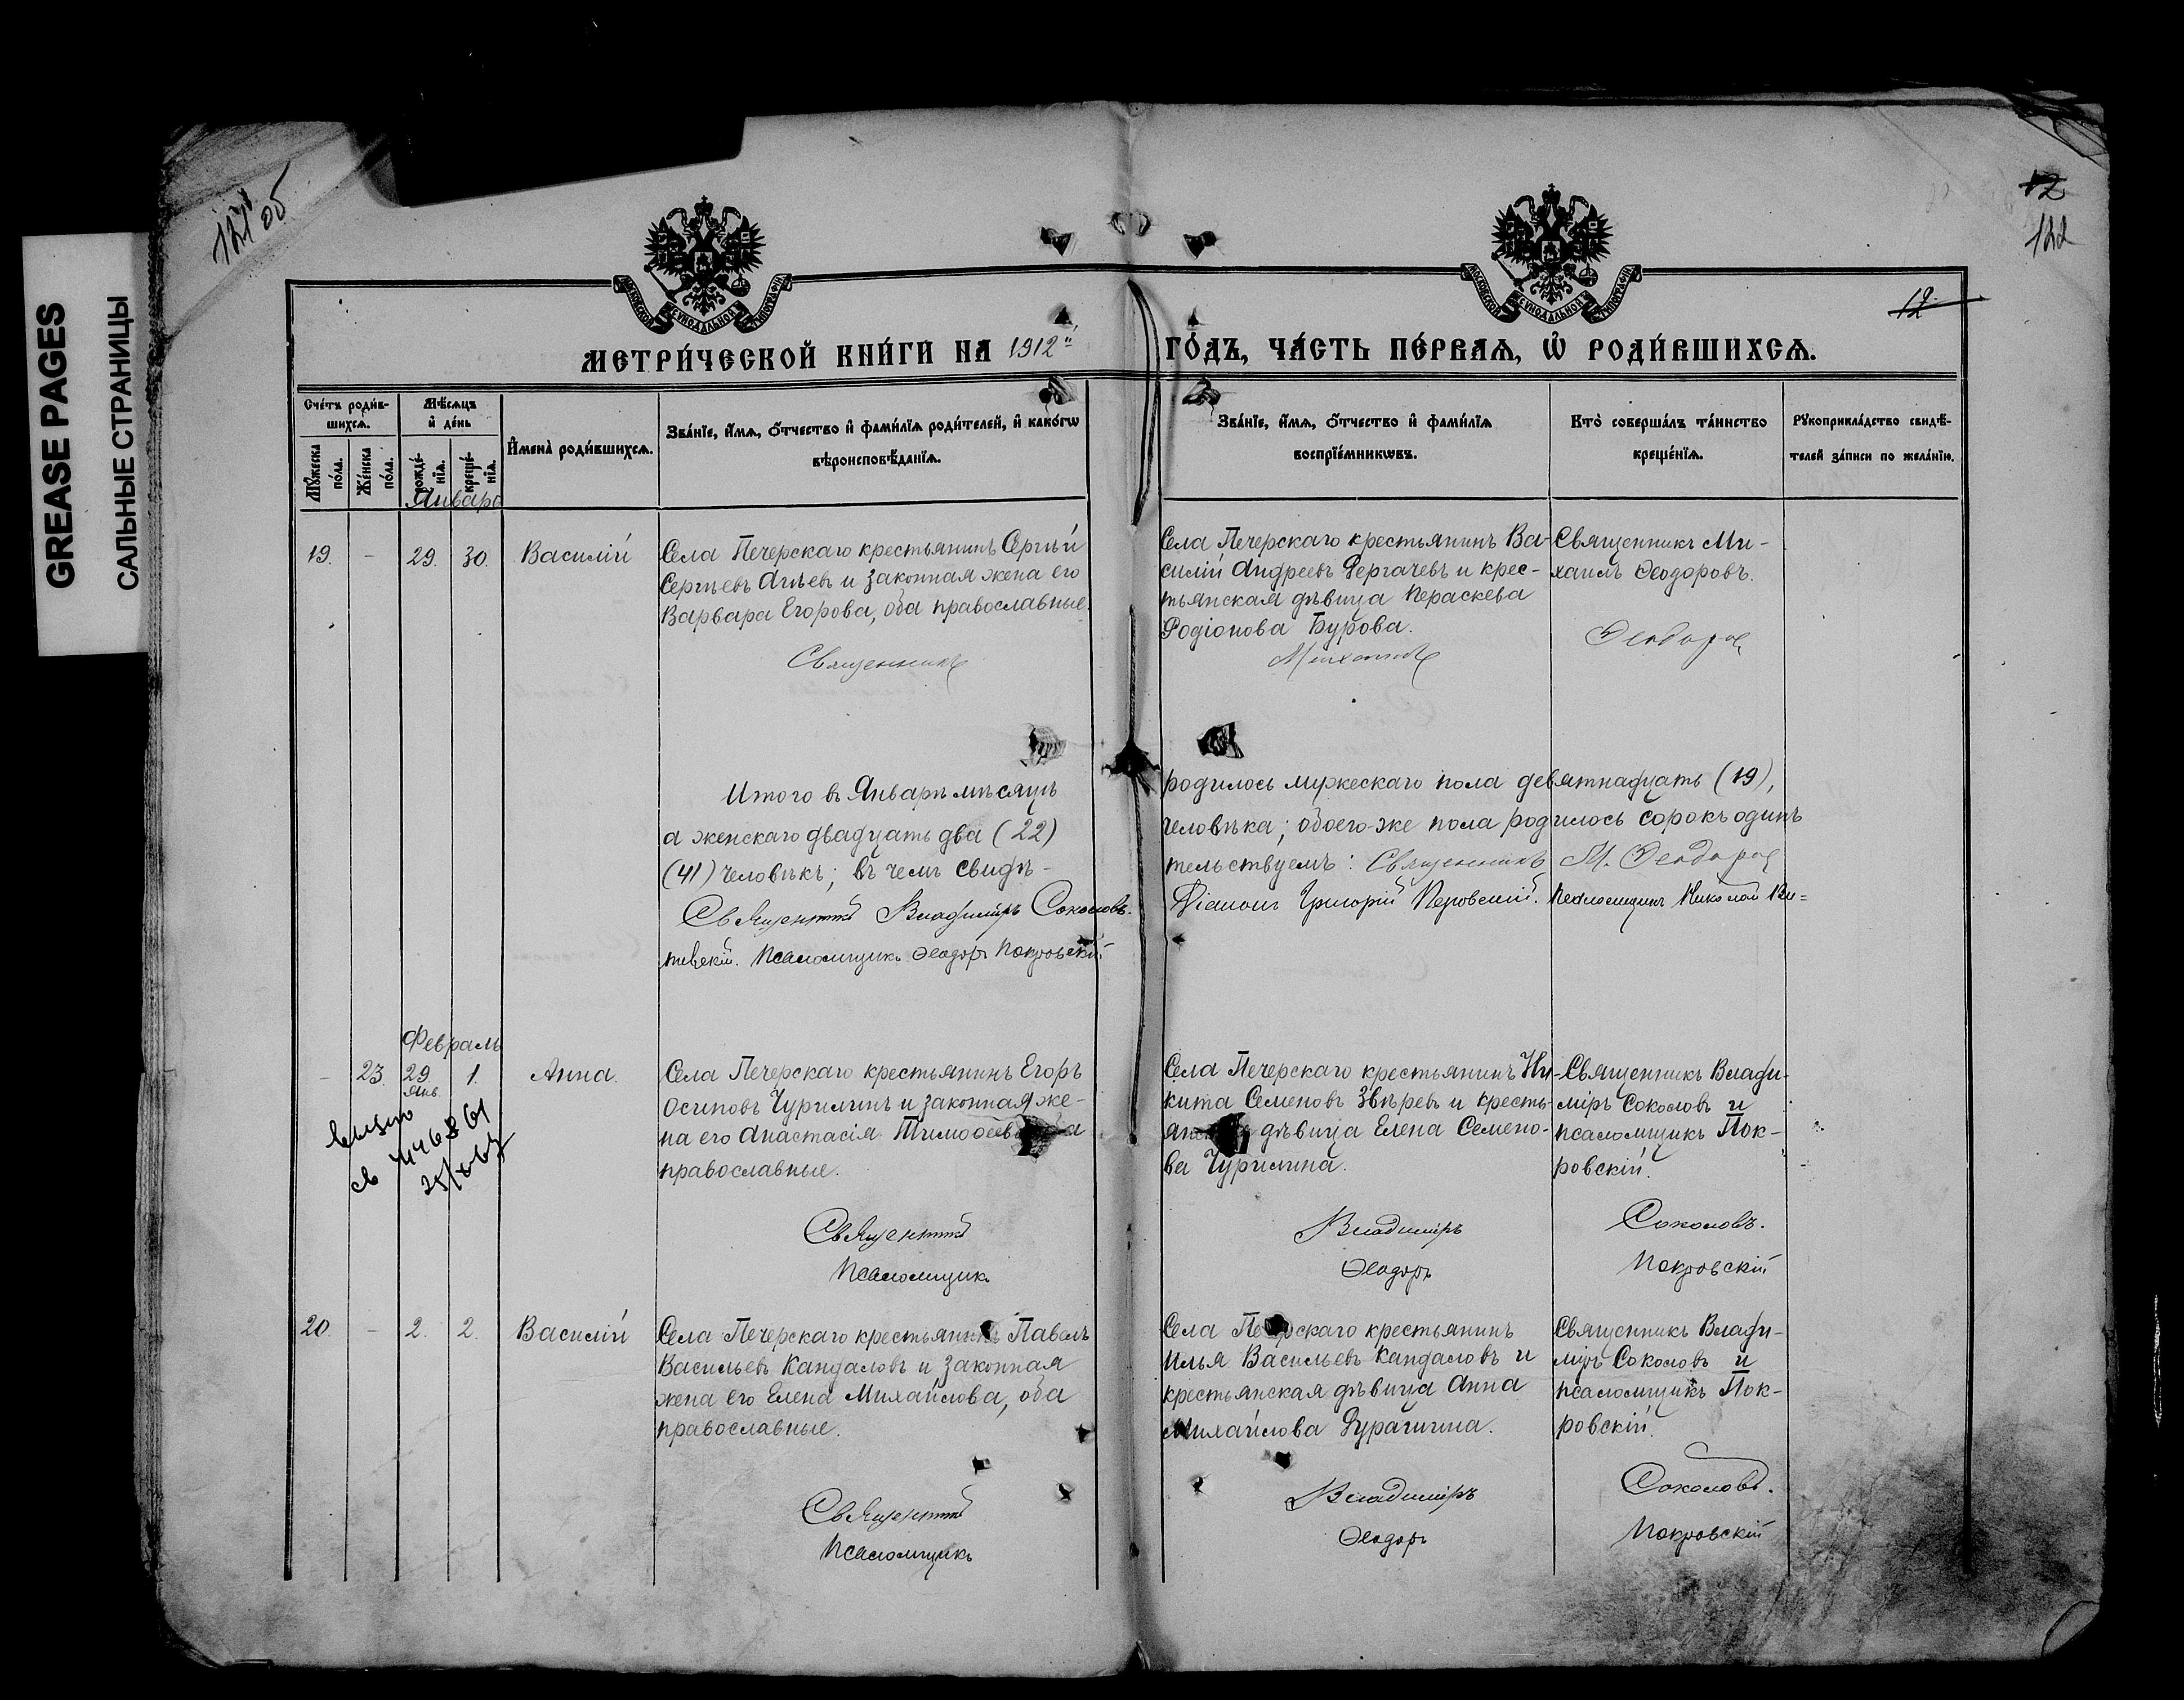 GREASE PAGES
САЛЬНЫЕ СТРАНИЦЫ
121 об
12
122
12
МЕТРИ́ЧЕСКОЙ КНИ́ГИ НА 1912й
ГО́ДЪ, ЧА́СТЬ ПЕ́РВАѦ, Ѿ РОДИ́ВШИХСѦ.
Сче́тъ роди́в-
шихсѧ.
Мѣ́сѧцъ
и҆ де́нь
Мꙋ́жеска
по́ла.
Же́нска
по́ла.
рожде́-
нїѧ.
креще́-
нїѧ.
И҆мена̀ роди́вшихсѧ.
Зва́нїе, и҆́мѧ, ѻ҆́тчество и҆ фами́лїѧ роди́телей, и҆ како́гѡ
вѣроисповѣ́данїѧ.
Зва́нїе, и҆́мѧ, ѻ҆́тчество и҆ фами́лїѧ
воспрїе́мникѡвъ.
Кто̀ соверша́лъ та́инство
креще́нїѧ.
Рꙋкоприкла́дство свидѣ́-
телей за́писи по жела́нїю.
Январь
19. - 29. 30. Василій
Села Печерскаго крестьянинъ Сергѣй
Сергѣевъ Агѣевъ и законная жена его
Варвара Егорова, оба православные.
Священникъ
Села Печерскаго крестьянинъ Ва-
силій Андреевъ Дергачевъ и крес-
тьянская дѣвица Параскева
Родіонова Бурова.
Михаилъ
Священникъ Ми-
хаилъ Ѳеодоровъ.
Ѳеодоровъ
Итого въ Январѣ мѣсяцѣ
родилось мужескаго пола девятнадцать (19),
а женскаго двадцать два (22)
человѣка; обоего-же пола родилось сорокъ одинъ
(41) человѣкъ; въ чемъ свидѣ-
тельствуемъ: Священникъ М. Ѳеодоровъ
Священникъ Владиміръ Соколовъ.
Діаконъ Григорій Перовскій. Псаломщикъ Николай Ви=
Псаломщикъ Ѳеодоръ Покровскій
Февраль
- 23. 29. Янв. 1. Анна.
Села Печерскаго крестьянинъ Егоръ
Осиповъ Чурилинъ и законная же-
на его Анастасія Тимоѳеева
православные.
Священникъ
Псаломщикъ
Села Печерскаго крестьянинъ Ни-
кита Семеновъ Звѣревъ и кресть-
дѣвица Елена Семено-
ва Чурилина.
Владиміръ
Ѳеодоръ
Священникъ Влади-
міръ Соколовъ и
псаломщикъ Пок-
ровскій.
Соколовъ.
Покровскій
20. - 2. 2. Василій
Села Печерскаго крестьянинъ Павелъ
Васильевъ Кандаловъ и законная
жена его Елена Михайлова, оба
православные.
Священникъ
Псаломщикъ
Села Печерскаго крестьянинъ
Илья Васильевъ Кандаловъ и
крестьянская дѣвица Анна
Михайлова Дурагина.
Владиміръ
Ѳеодоръ
Священникъ Влади-
міръ Соколовъ и
псаломщикъ Пок-
ровскій.
Соколовъ.
Покровскій